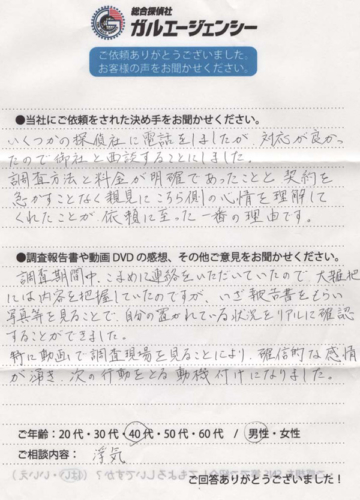 総合探偵社
ガルエージェンシー
ご依頼ありがとうございました。
お客様の声をお聞かせください。
●当社にご依頼をされた決め手をお聞かせください。
いくつかの探偵社に電話をしましたが、対応が良かっ
たので御社と面談することにしました。
調査方法と料金が明確であったことと、契約を
急かすことなく親見にこちら側の心情を理解して
くれたことが依頼に至った一番の理由です。
●調査報告書や動画DVDの感想、その他ご意見をお聞かせください。
調査期間中、こまめに連絡をいただいていたので、大雑把
には内容を把握していたのですが、いざ報告書をもらい
写真等を見ることで、自分の置かれている状況をリアルに確認
することができました。
特に動画で調査現場を見ることにより、確信的な感情
が湧き、次の行動をとる動機付けになりました。
ご年齢：20代・30代・40代・50代・60代 / 男性・女性
ご相談内容： 浮気
ご回答ありがとうございました！